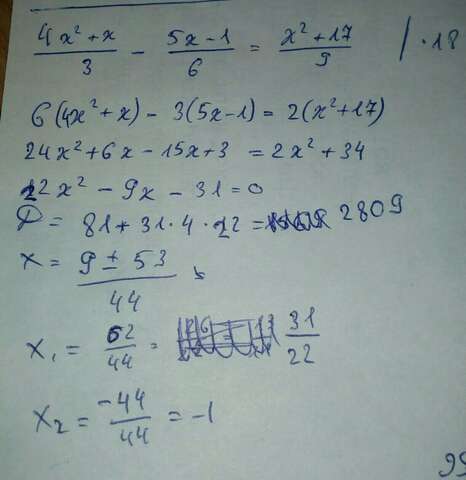 (4x² + x)/3 - (5x - 1)/6 = (x² + 17)/9 / · 18
6(4x² + x) - 3(5x - 1) = 2(x² + 17)
24x² + 6x - 15x + 3 = 2x² + 34
22x² - 9x - 31 = 0
D = 81 + 31 · 4 · 22 = 2809
x = (9 ± 53)/44
x₁ = 62/44 = 31/22
x₂ = -44/44 = -1
99